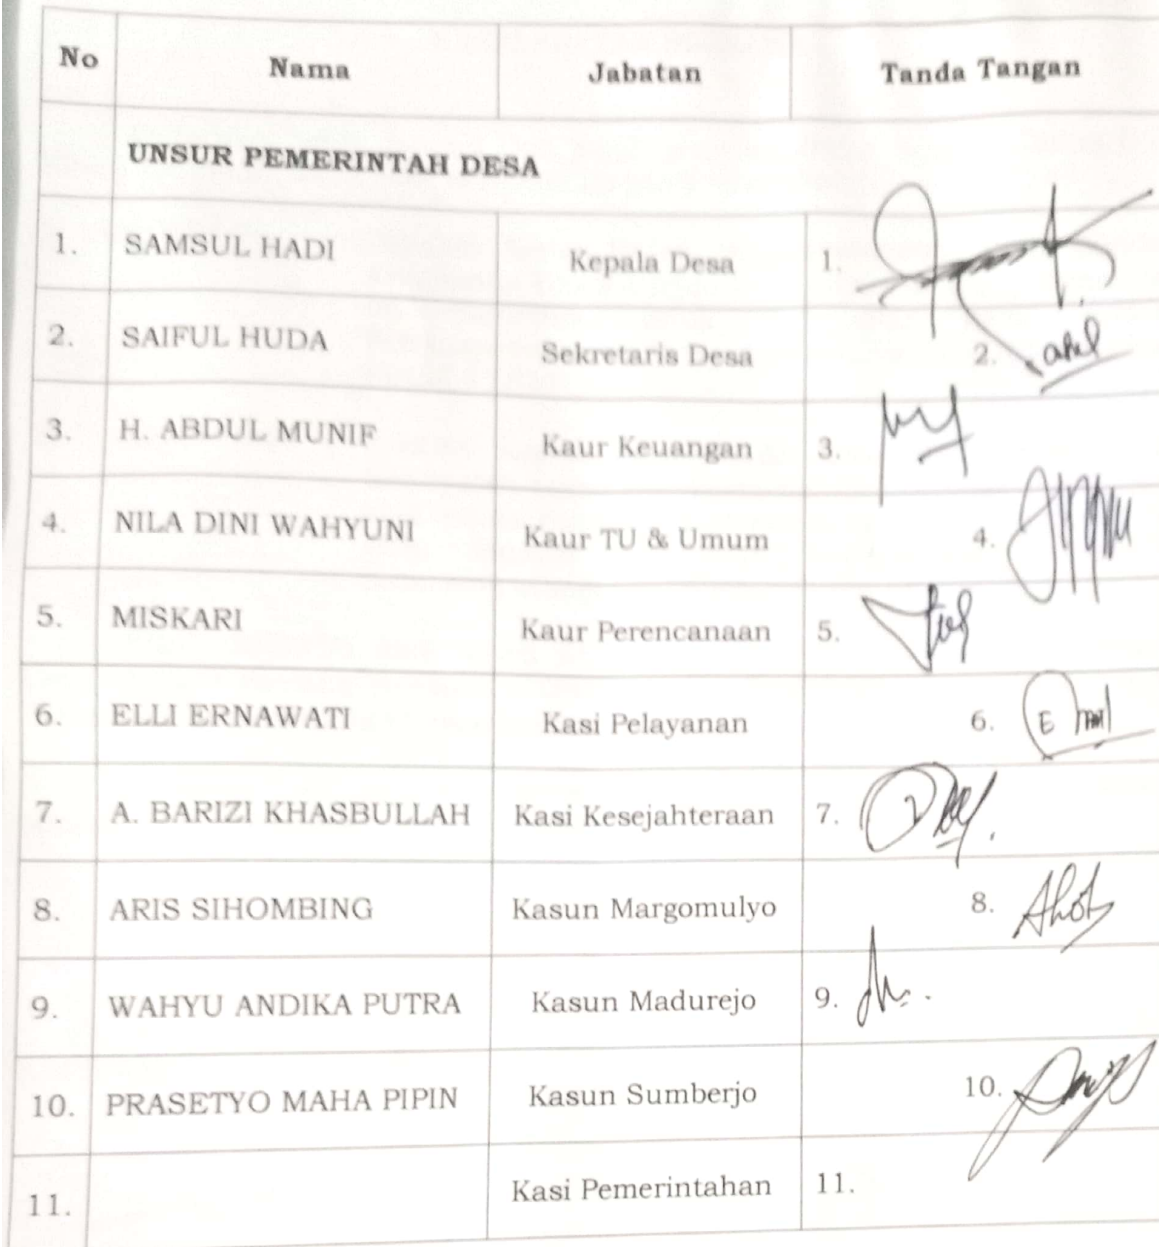 No Nama Jabatan Tanda Tangan
UNSUR PEMERINTAH DESA
1. SAMSUL HADI Kepala Desa 1.
2. SAIFUL HUDA Sekretaris Desa 2.
3. H. ABDUL MUNIF Kaur Keuangan 3.
4. NILA DINI WAHYUNI Kaur TU & Umum 4.
5. MISKARI Kaur Perencanaan 5.
6. ELLI ERNAWATI Kasi Pelayanan 6.
7. A. BARIZI KHASBULLAH Kasi Kesejahteraan 7.
8. ARIS SIHOMBING Kasun Margomulyo 8.
9. WAHYU ANDIKA PUTRA Kasun Madurejo 9.
10. PRASETYO MAHA PIPIN Kasun Sumberjo 10.
11. Kasi Pemerintahan 11.